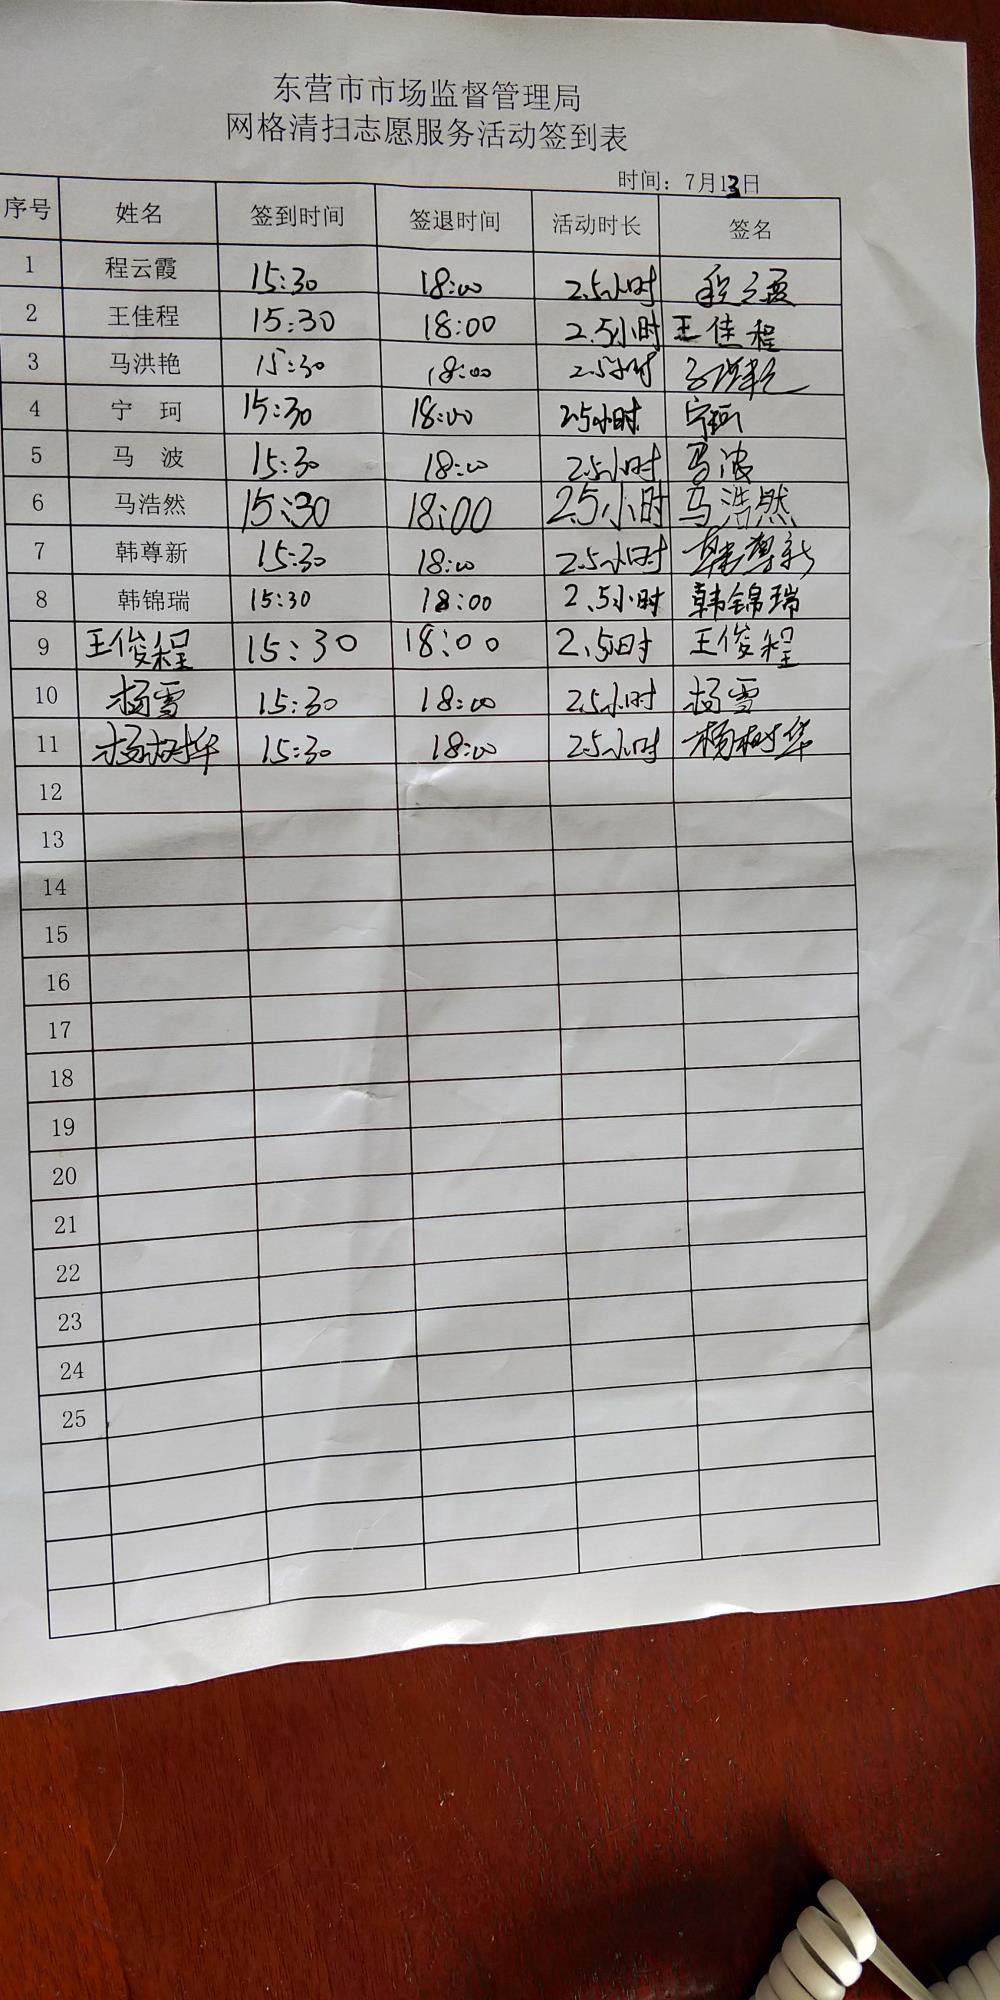 东营市市场监督管理局
网格清扫志愿服务活动签到表
时间：7月13日
序号 姓名 签到时间 签退时间 活动时长 签名
1 程云霞 15:30 18:00 2.5小时 程云霞
2 王佳程 15:30 18:00 2.5小时 王佳程
3 马洪艳 15:30 18:00 2.5小时 马洪艳
4 宁 珂 15:30 18:00 2.5小时 宁珂
5 马 波 15:30 18:00 2.5小时 马波
6 马浩然 15:30 18:00 2.5小时 马浩然
7 韩尊新 15:30 18:00 2.5小时 韩尊新
8 韩锦瑞 15:30 18:00 2.5小时 韩锦瑞
9 王俊程 15:30 18:00 2.5小时 王俊程
10 杨雪 15:30 18:00 2.5小时 杨雪
11 杨树华 15:30 18:00 2.5小时 杨树华
12
13
14
15
16
17
18
19
20
21
22
23
24
25